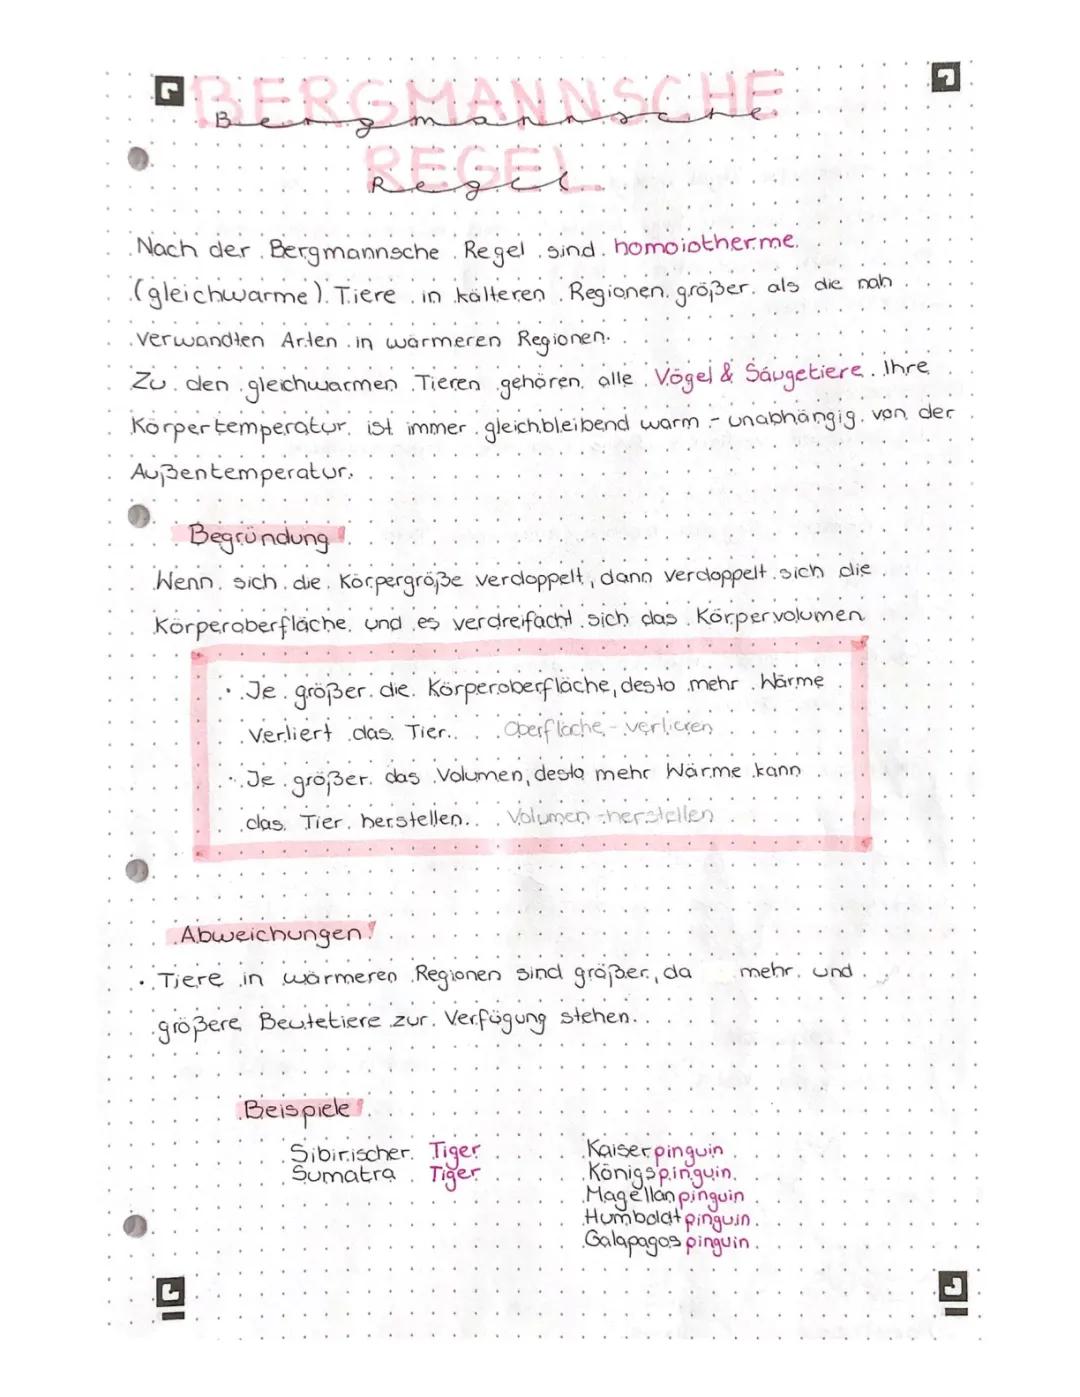 BERGMANNSCHE
Bergmannsche
REGEL
Regel
Nach der Bergmannsche Regel sind homoiotherme
(gleichwarme) Tiere in kälteren Regionen größer als die nah
verwandten Arten in wärmeren Regionen.
Zu den gleichwarmen Tieren gehören alle Vögel & Säugetiere. Ihre
Körpertemperatur ist immer gleichbleibend warm - unabhängig von der
Außentemperatur.
Begründung
Wenn sich die Körpergröße verdoppelt, dann verdoppelt sich die
Körperoberfläche und es verdreifacht sich das Körpervolumen
· Je größer die Körperoberfläche, desto mehr Wärme
verliert das Tier. Oberfläche - verlieren
· Je größer das Volumen, desto mehr Wärme kann
das Tier herstellen. Volumen - herstellen
Abweichungen
· Tiere in wärmeren Regionen sind größer, da mehr und
größere Beutetiere zur Verfügung stehen.
Beispiele
Sibirischer Tiger
Sumatra Tiger
Kaiserpinguin
Königspinguin
Magellanpinguin
Humboldtpinguin
Galapagospinguin